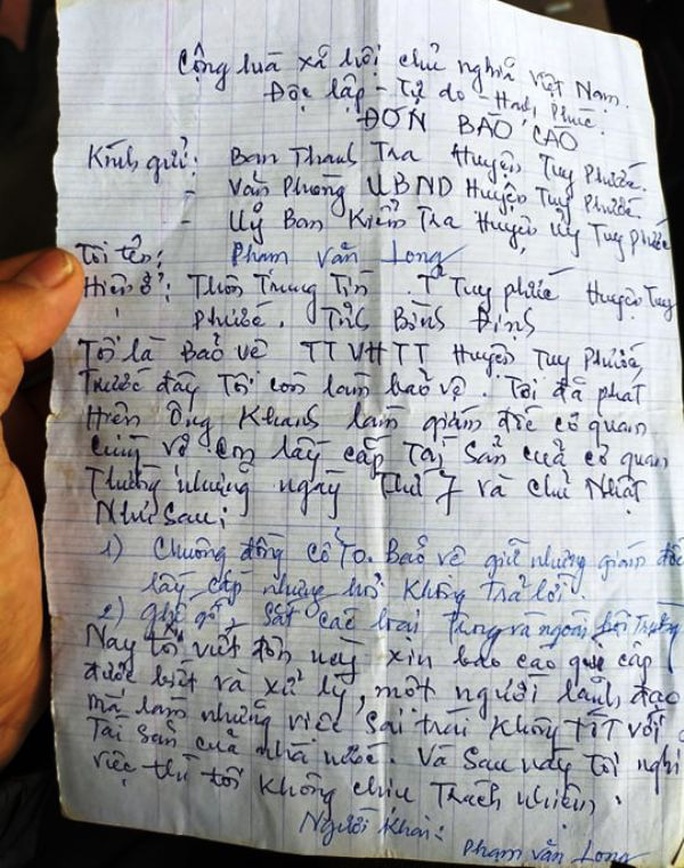 Cộng hoà xã hội chủ nghĩa Việt Nam.
Độc lập - Tự do - Hạnh Phúc.
ĐƠN BÁO CÁO
Kính gửi: Ban Thanh Tra Huyện Tuy Phước.
- Văn Phòng UBND Huyện Tuy Phước.
- Uỷ Ban Kiểm Tra Huyện Uỷ Tuy Phước
Tôi tên: Phạm Văn Long
Hiện ở: Thôn Trung Tín. TT Tuy phước Huyện Tuy
Phước. Tỉnh Bình Định
Tôi là Bảo vệ TTVHTT Huyện Tuy Phước,
Trước đây Tôi còn làm bảo vệ. Tôi đã phát
Hiện ông Khanh làm giám đốc cơ quan
cùng vợ con lấy cắp Tài Sản của cơ quan
Thường những ngày Thứ 7 và chủ Nhật
Như Sau:
1) Chuông đồng cổ To. Bảo vệ giữ nhưng giám đốc
lấy cắp nhưng hỏi Không Trả lời.
2) Ghế gỗ, Sắt các loại Trong và ngoài hội Trường
Nay tôi viết đơn này xin báo cáo quý cấp
được biết và xử lý, một người lãnh đạo
mà làm những việc Sai trái Không Tốt với
Tài Sản của nhà nước. Và Sau này tôi nghỉ
việc thì tôi Không chịu Trách nhiệm.
Người Khai:
Phạm Văn Long